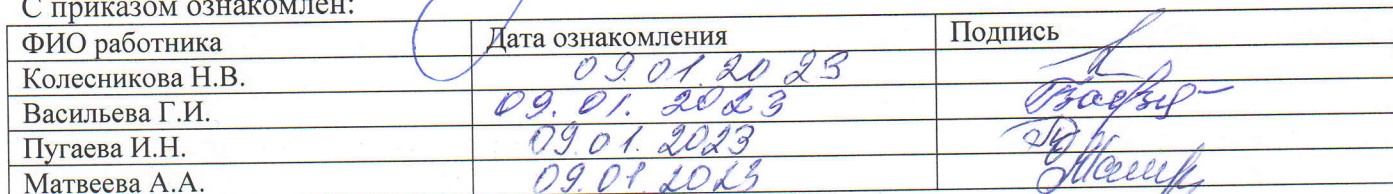 С приказом ознакомлен:
ФИО работника Дата ознакомления Подпись
Колесникова Н.В. 09.01.2023
Васильева Г.И. 09.01.2023
Пугаева И.Н. 09.01.2023
Матвеева А.А. 09.01.2023